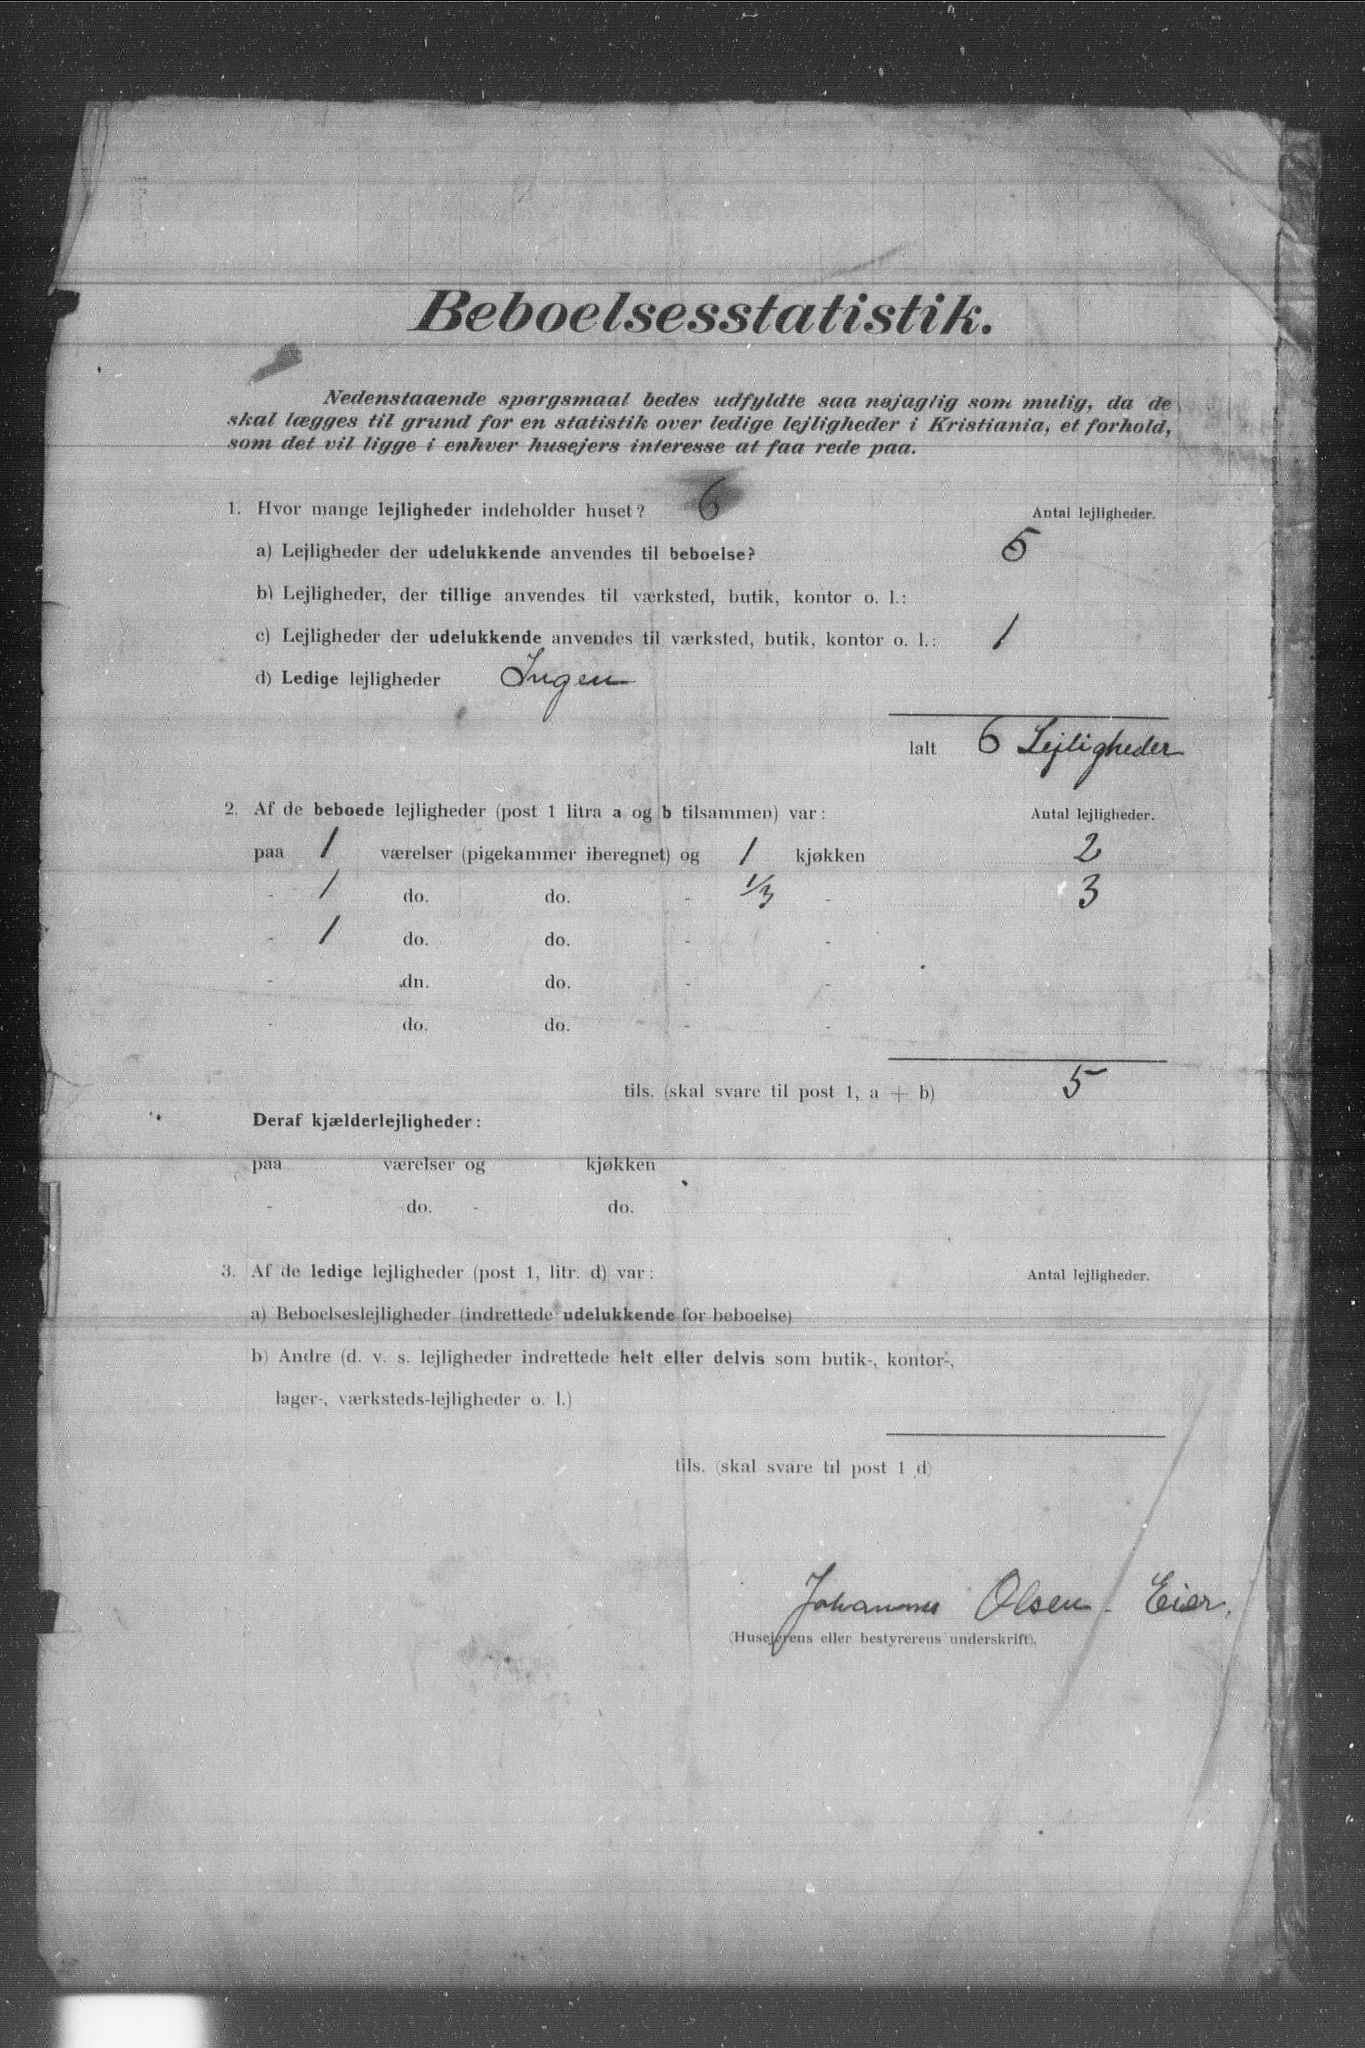 Beboelsesstatistik.
Nedenstaaende spørgsmaal bedes udfyldte saa nøjagtig som mulig, da de
skal lægges til grund for en statistik over ledige lejligheder i Kristiania, et forhold,
som det vil ligge i enhver husejers interesse at faa rede paa.
1. Hvor mange lejligheder indeholder huset? 6 Antal lejligheder.
a) Lejligheder der udelukkende anvendes til beboelse? 5
b) Lejligheder, der tillige anvendes til værksted, butik, kontor o. l.:
c) Lejligheder der udelukkende anvendes til værksted, butik, kontor o. l.: 1
d) Ledige lejligheder Ingen
Ialt 6 Lejligheder
2. Af de beboede lejligheder (post 1 litra a og b tilsammen) var: Antal lejligheder.
paa 1 værelser (pigekammer iberegnet) og 1 kjøkken 2
- 1 do. do. - 1/3 - 3
- 1 do. do. - -
- dn. do. - -
- do. do. - -
tils. (skal svare til post 1, a + b) 5
Deraf kjælderlejligheder:
paa værelser og kjøkken
- do. - do.
3. Af de ledige lejligheder (post 1, litr. d) var: Antal lejligheder.
a) Beboelseslejligheder (indrettede udelukkende for beboelse)
b) Andre (d. v. s. lejligheder indrettede helt eller delvis som butik-, kontor-,
lager-, værksteds-lejligheder o. l.)
tils. (skal svare til post 1 d)
Johannes Olsen. Eier.
(Husejerens eller bestyrerens underskrift).